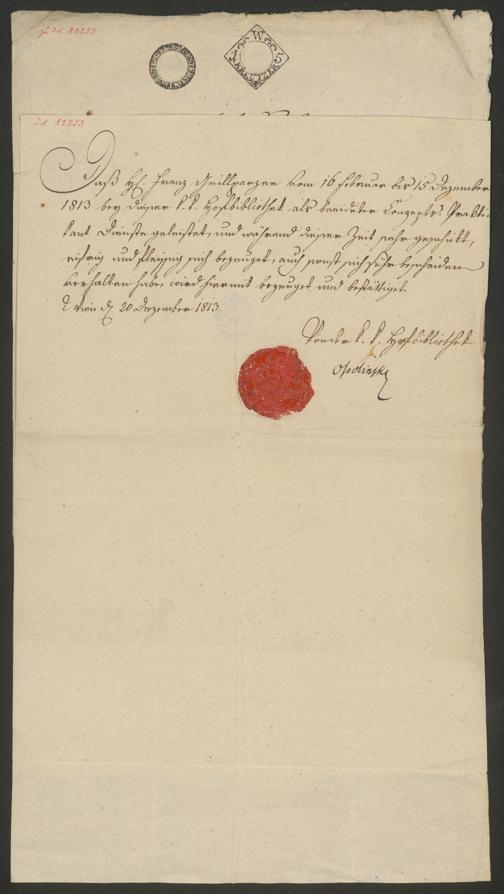 J.N. 82253
W
KREUTZER
J.N. 82253
Daß H. Franz Grillparzer vom 16 Februar bis 15 Dezember
1813 bey dieser k. k. Hofbibliothek, als beeideter Konzepts Prakti-
kant Dienste geleistet, und während dieser Zeit sehr geschikt,
eifrig und fleissig sich bezeuget, auch sonst sich sehr bescheiden
verhalten habe, wird hiermit bezeuget und bestättiget.
Wien d. 20 Dezember 1813.
Von der k. k. Hofbibliothek
Ossolinski